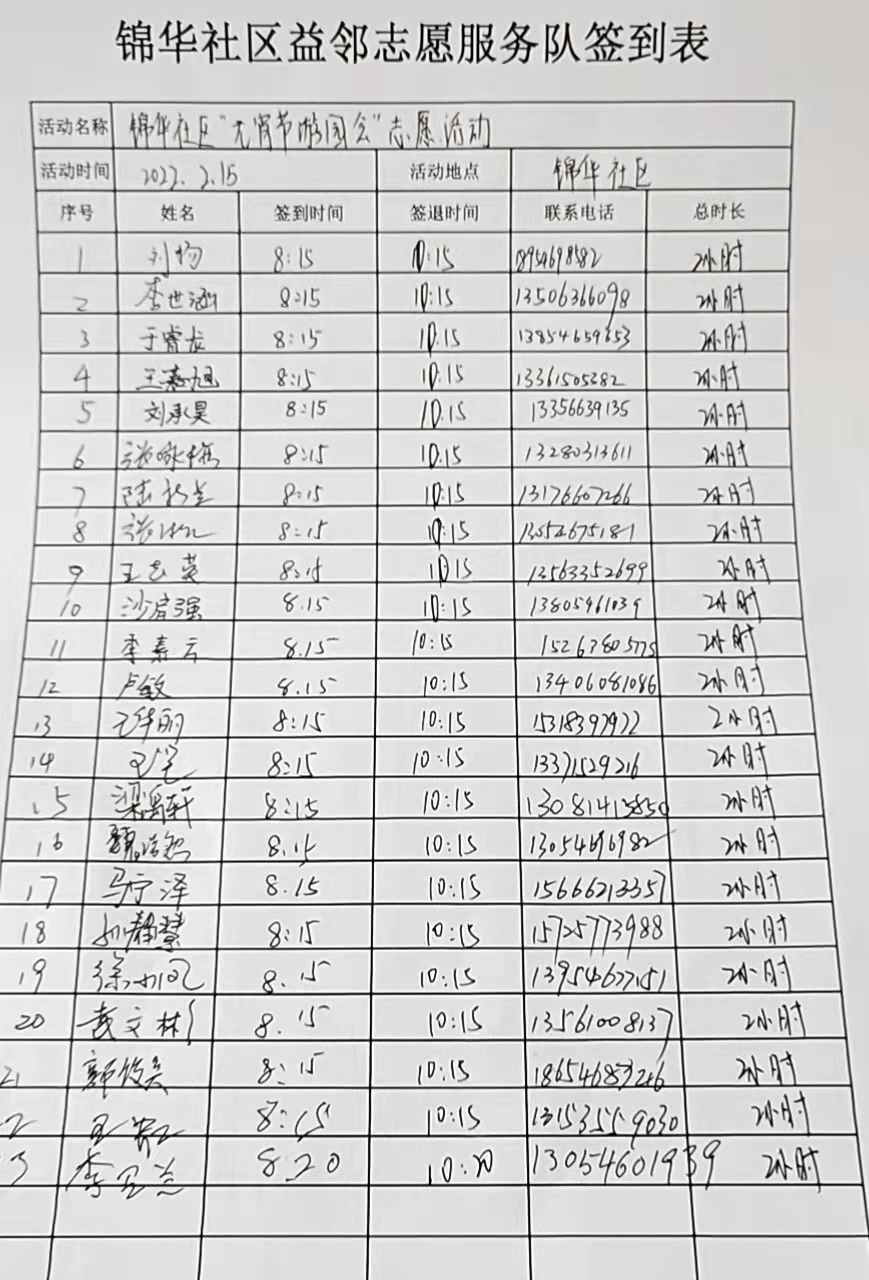 锦华社区益邻志愿服务队签到表
活动名称 锦华社区"元宵节游园会"志愿活动
活动时间 2022.2.15 活动地点 锦华社区
序号 姓名 签到时间 签退时间 联系电话 总时长
1 8:15 10:15 2小时
2 李世涵 8:15 10:15 13506366098 2小时
3 于睿龙 8:15 10:15 13854659653 2小时
4 王嘉旭 8:15 10:15 13361505382 2小时
5 刘承昊 8:15 10:15 13356639135 2小时
6 8:15 10:15 13280313611 2小时
7 8:15 10:15 13176607266 2小时
8 8:15 10:15 2小时
9 王志英 8:15 10:15 13563352699 2小时
10 沙启强 8.15 10:15 13805461039 2小时
11 李素云 8.15 10:15 15263805775 2小时
12 卢敏 8.15 10:15 13406081086 2小时
13 王华丽 8:15 10:15 2小时
14 8:15 10:15 13371529216 2小时
15 梁禹轩 8:15 10:15 13081413850 2小时
16 8.15 10:15 2小时
17 马宁泽 8.15 10:15 15666213357 2小时
18 孙静慧 8:15 10:15 15725773988 2小时
19 8.15 10:15 13954677151 2小时
20 袁文彬 8.15 10:15 13561008137 2小时
21 8:15 10:15 2小时
2 8:15 10:15 13153559030 2小时
3 李卫兰 8.20 10:20 13054601939 2小时